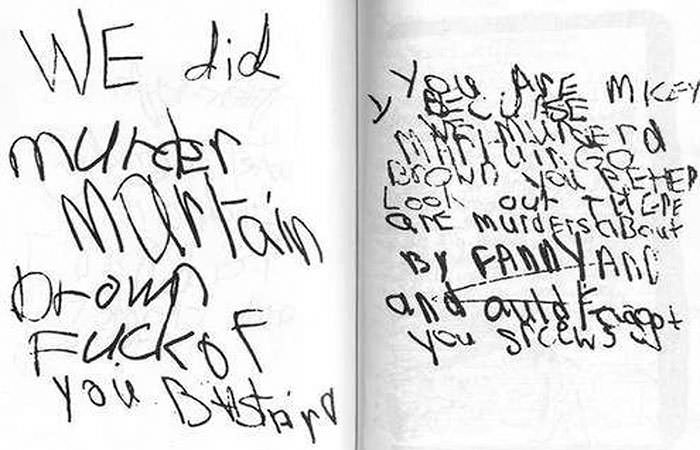 WE did
murder
martain
brown
Fuckof
you BAstArd
you ArE micey
y BECuRSE
WE murdErd
MARtAin GO
Brown you BEtEr
Look out THErE
arE murdErs aBout
By FANNy AND
and auld Faggot
you srcews